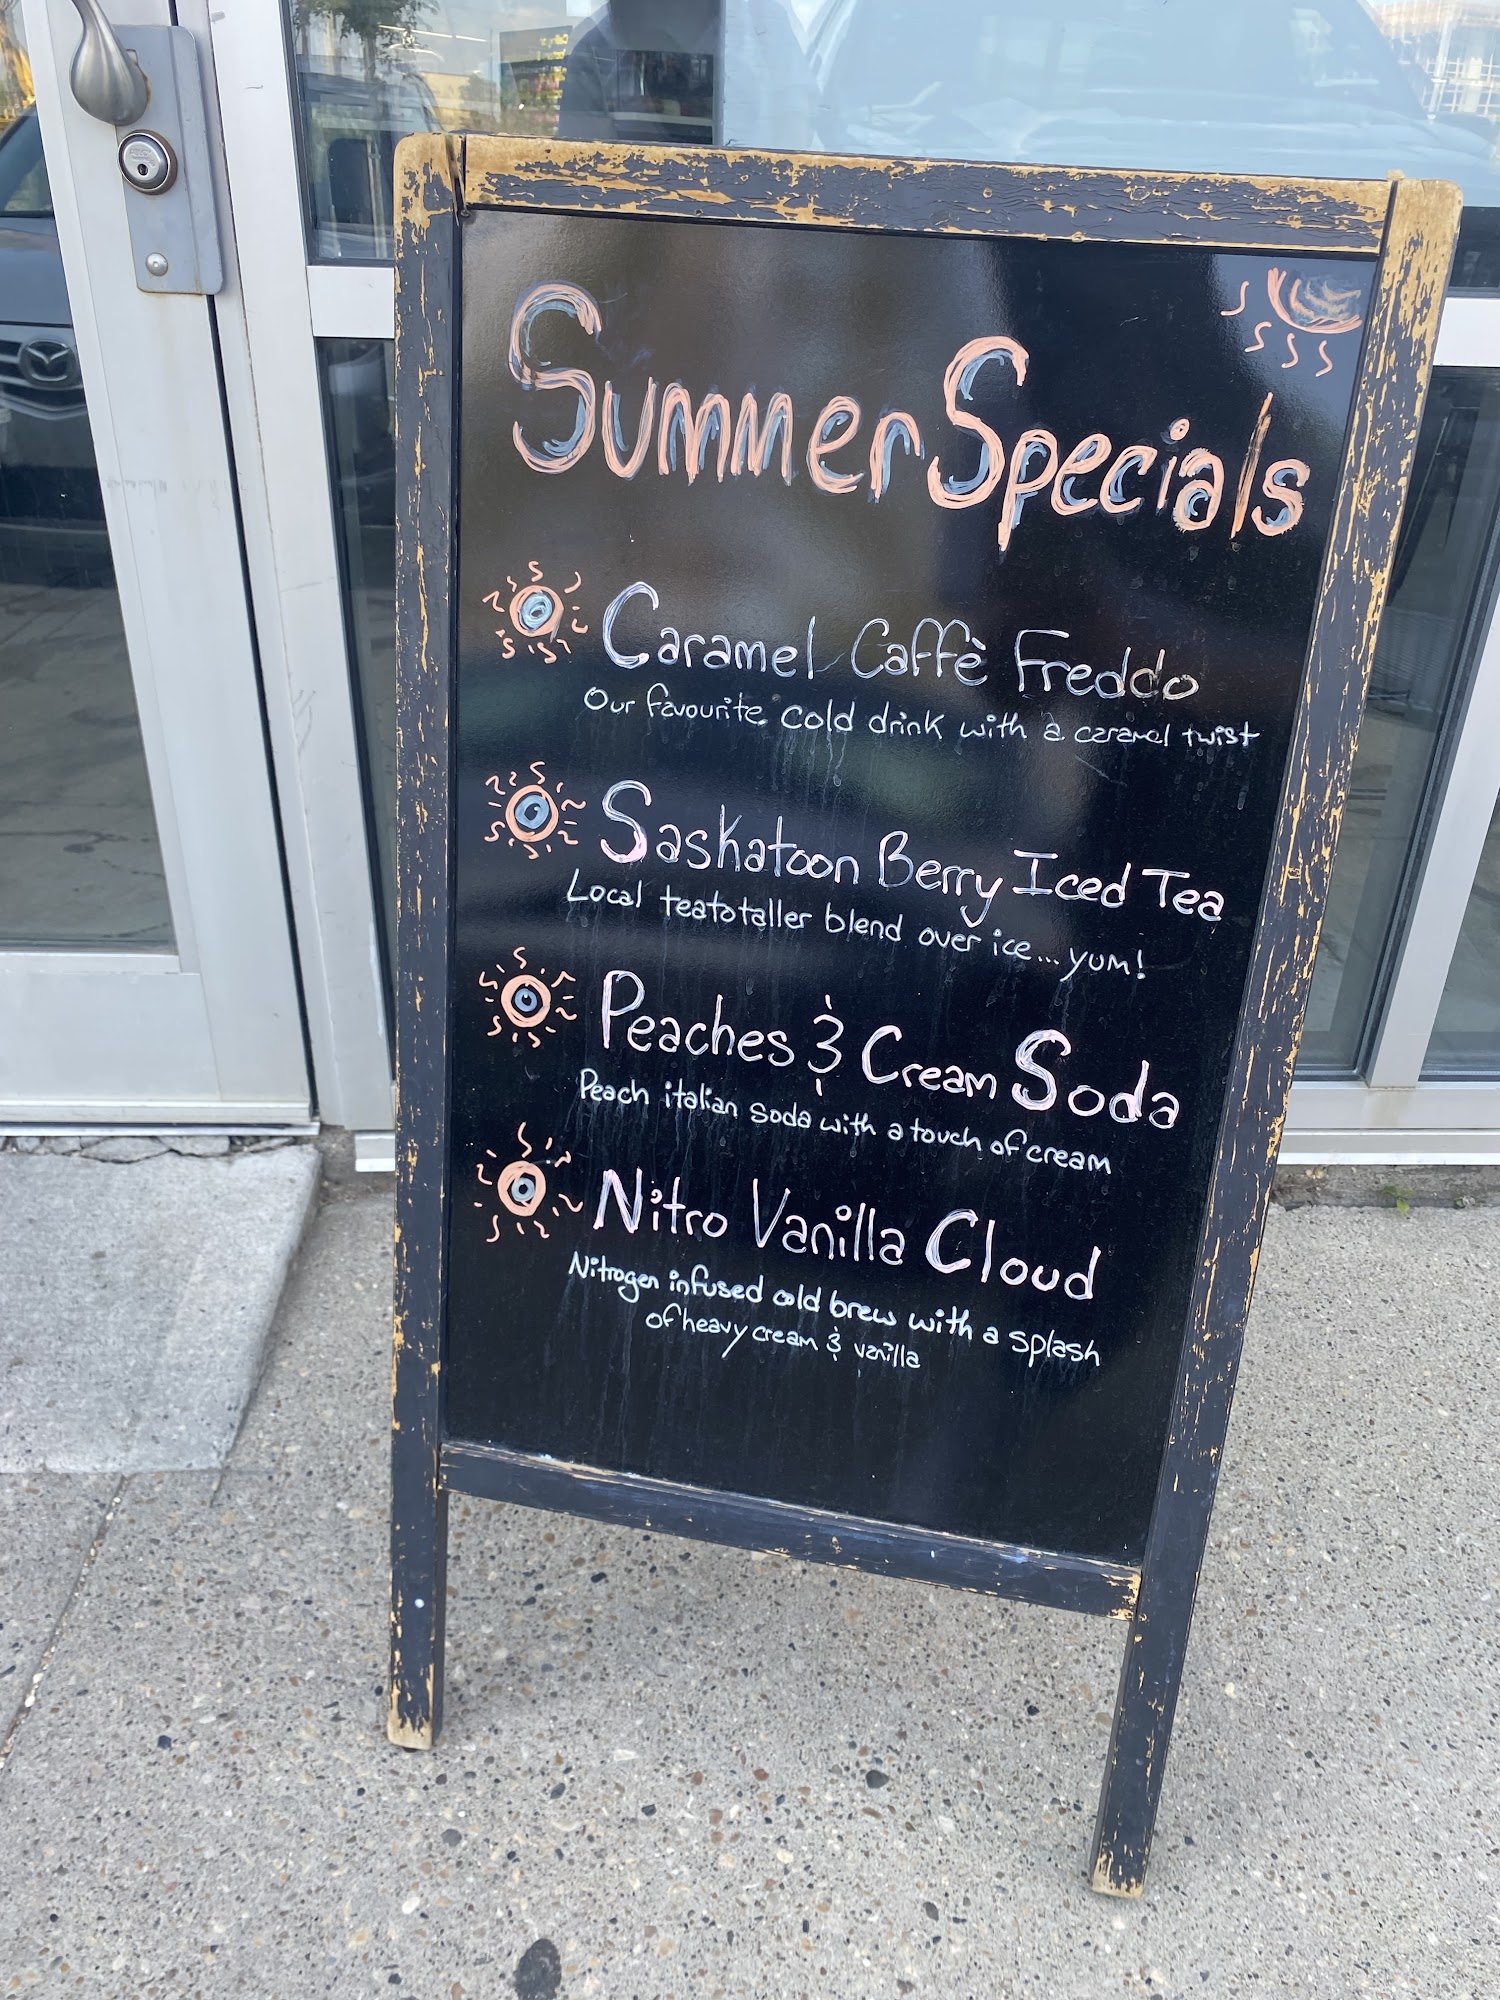 Summer Specials
Caramel Caffè Freddo
Our favourite cold drink with a caramel twist
Saskatoon Berry Iced Tea
Local teatotaller blend over ice... yum!
Peaches & Cream Soda
Peach italian soda with a touch of cream
Nitro Vanilla Cloud
Nitrogen infused cold brew with a splash
of heavy cream & vanilla